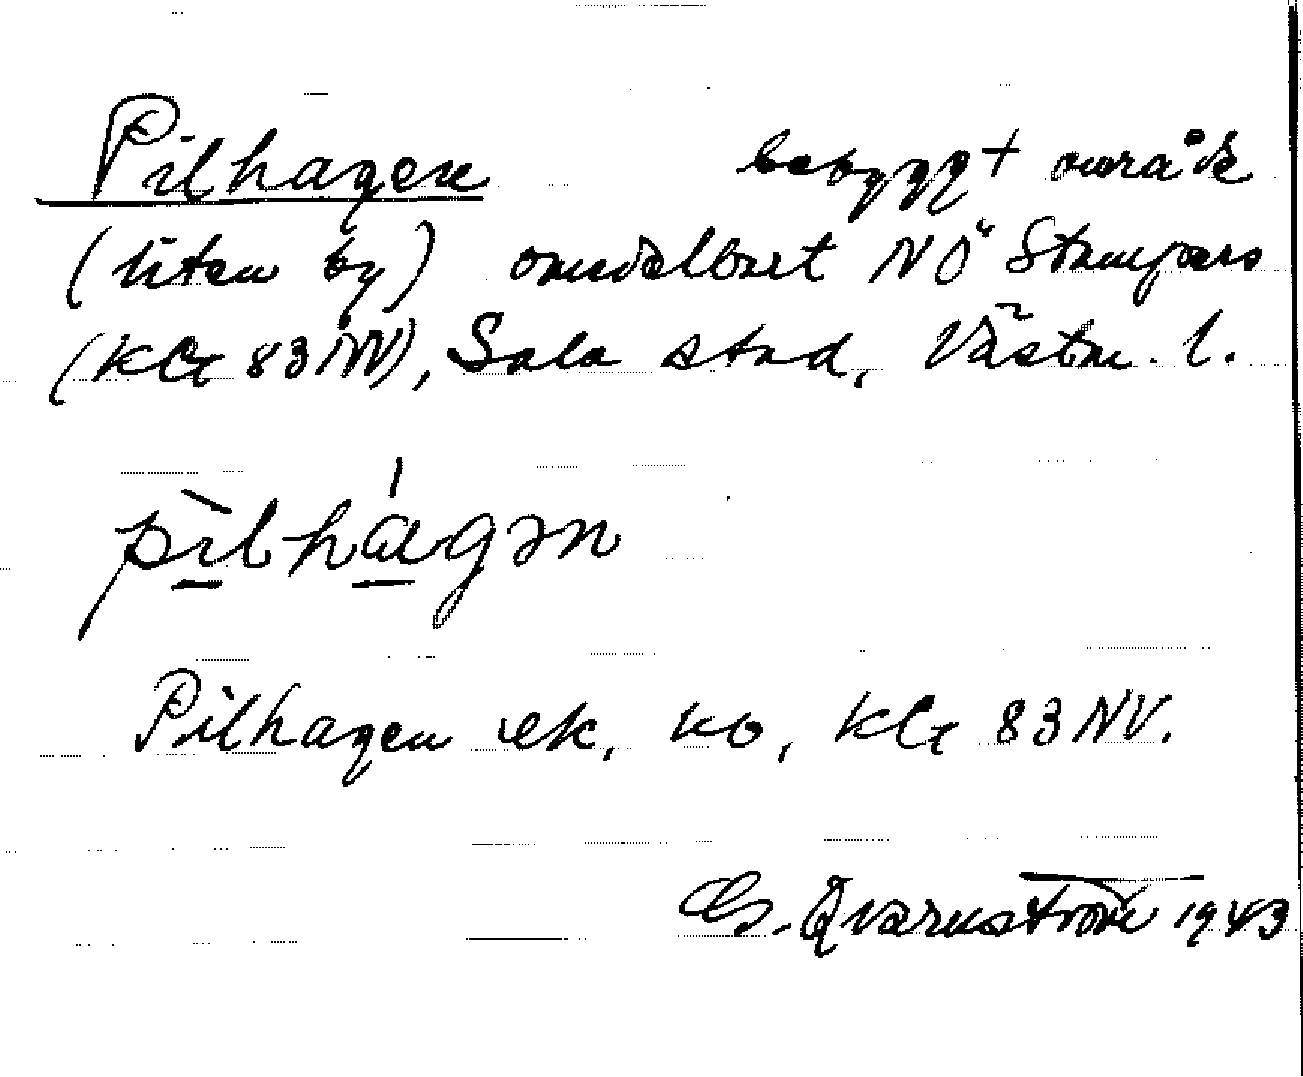 Pilhagen bebyggt område
(liten by) omedelbart NÖ Stampers
(KG 83 NV), Sala stad, Västm. l.
pìlhágən
Pilhagen ek, ko, KG 83 NV.
G. Qvarnström 1943